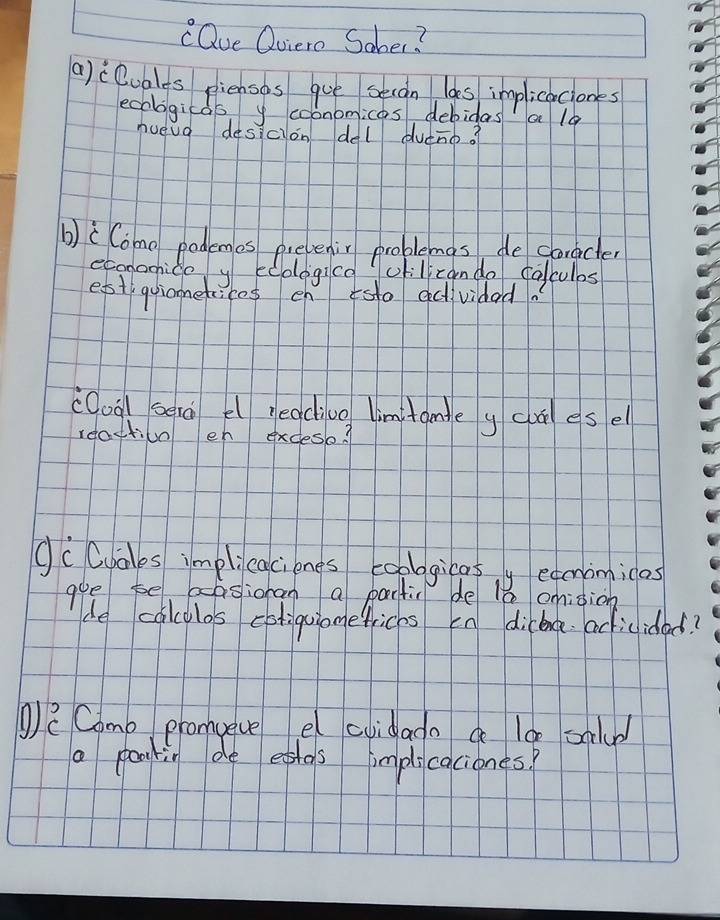 ¿Que Quiero Saber?
a) ¿Cuales piensas que serán las implicaciones
ecologicas y economicas debidas a la
nueva desición del dueño?
b) ¿Cómo podemos prevenir problemas de carácter
economico y ecológico utilizando cálculos
estiquiometricos en esta actividad?
¿Cuál será el reactivo limitante y cuál es el
reactivo en exceso?
¿Cuáles implicaciones ecologicas y económicas
que se ocasionan a partir de la omision
de cálculos estiquiometricos en dicha actividad?
¿Como promueve el cuidado a la salud
a partir de estas implicaciones?